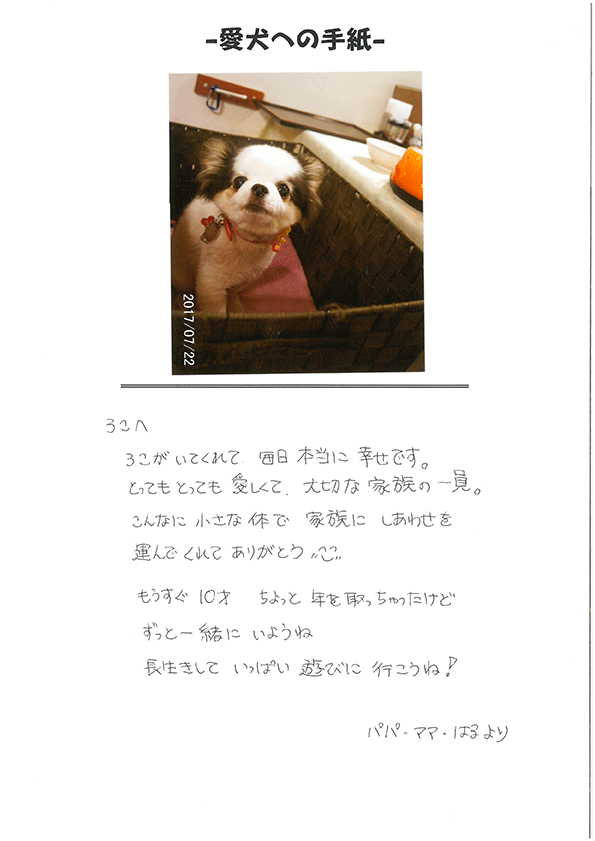 -愛犬への手紙-
2017/07/22
ろこへ
ろこがいてくれて、毎日 本当に 幸せです。
とってもとっても 愛しくて、大切な 家族の 一員。
こんなに 小さな 体で 家族に しあわせを
運んでくれて ありがとう
もうすぐ 10才 ちょっと 年を取っちゃったけど
ずっと一緒に いようね
長生きして いっぱい 遊びに 行こうね!
パパ・ママ・はるより